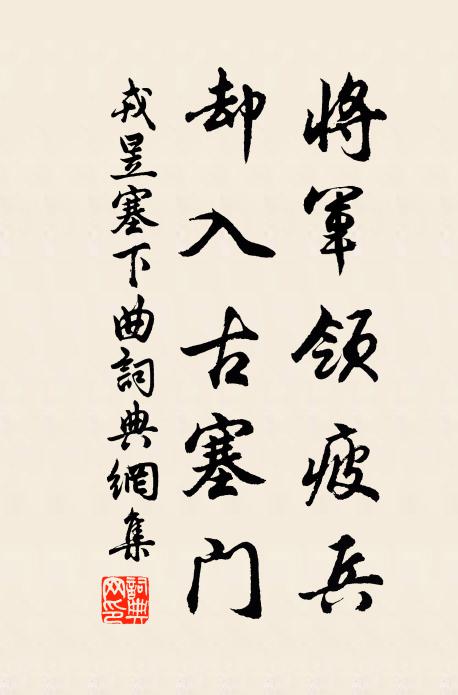 將軍領疲兵
却入古塞門
戎昱塞下曲詞典網集
詞典网印